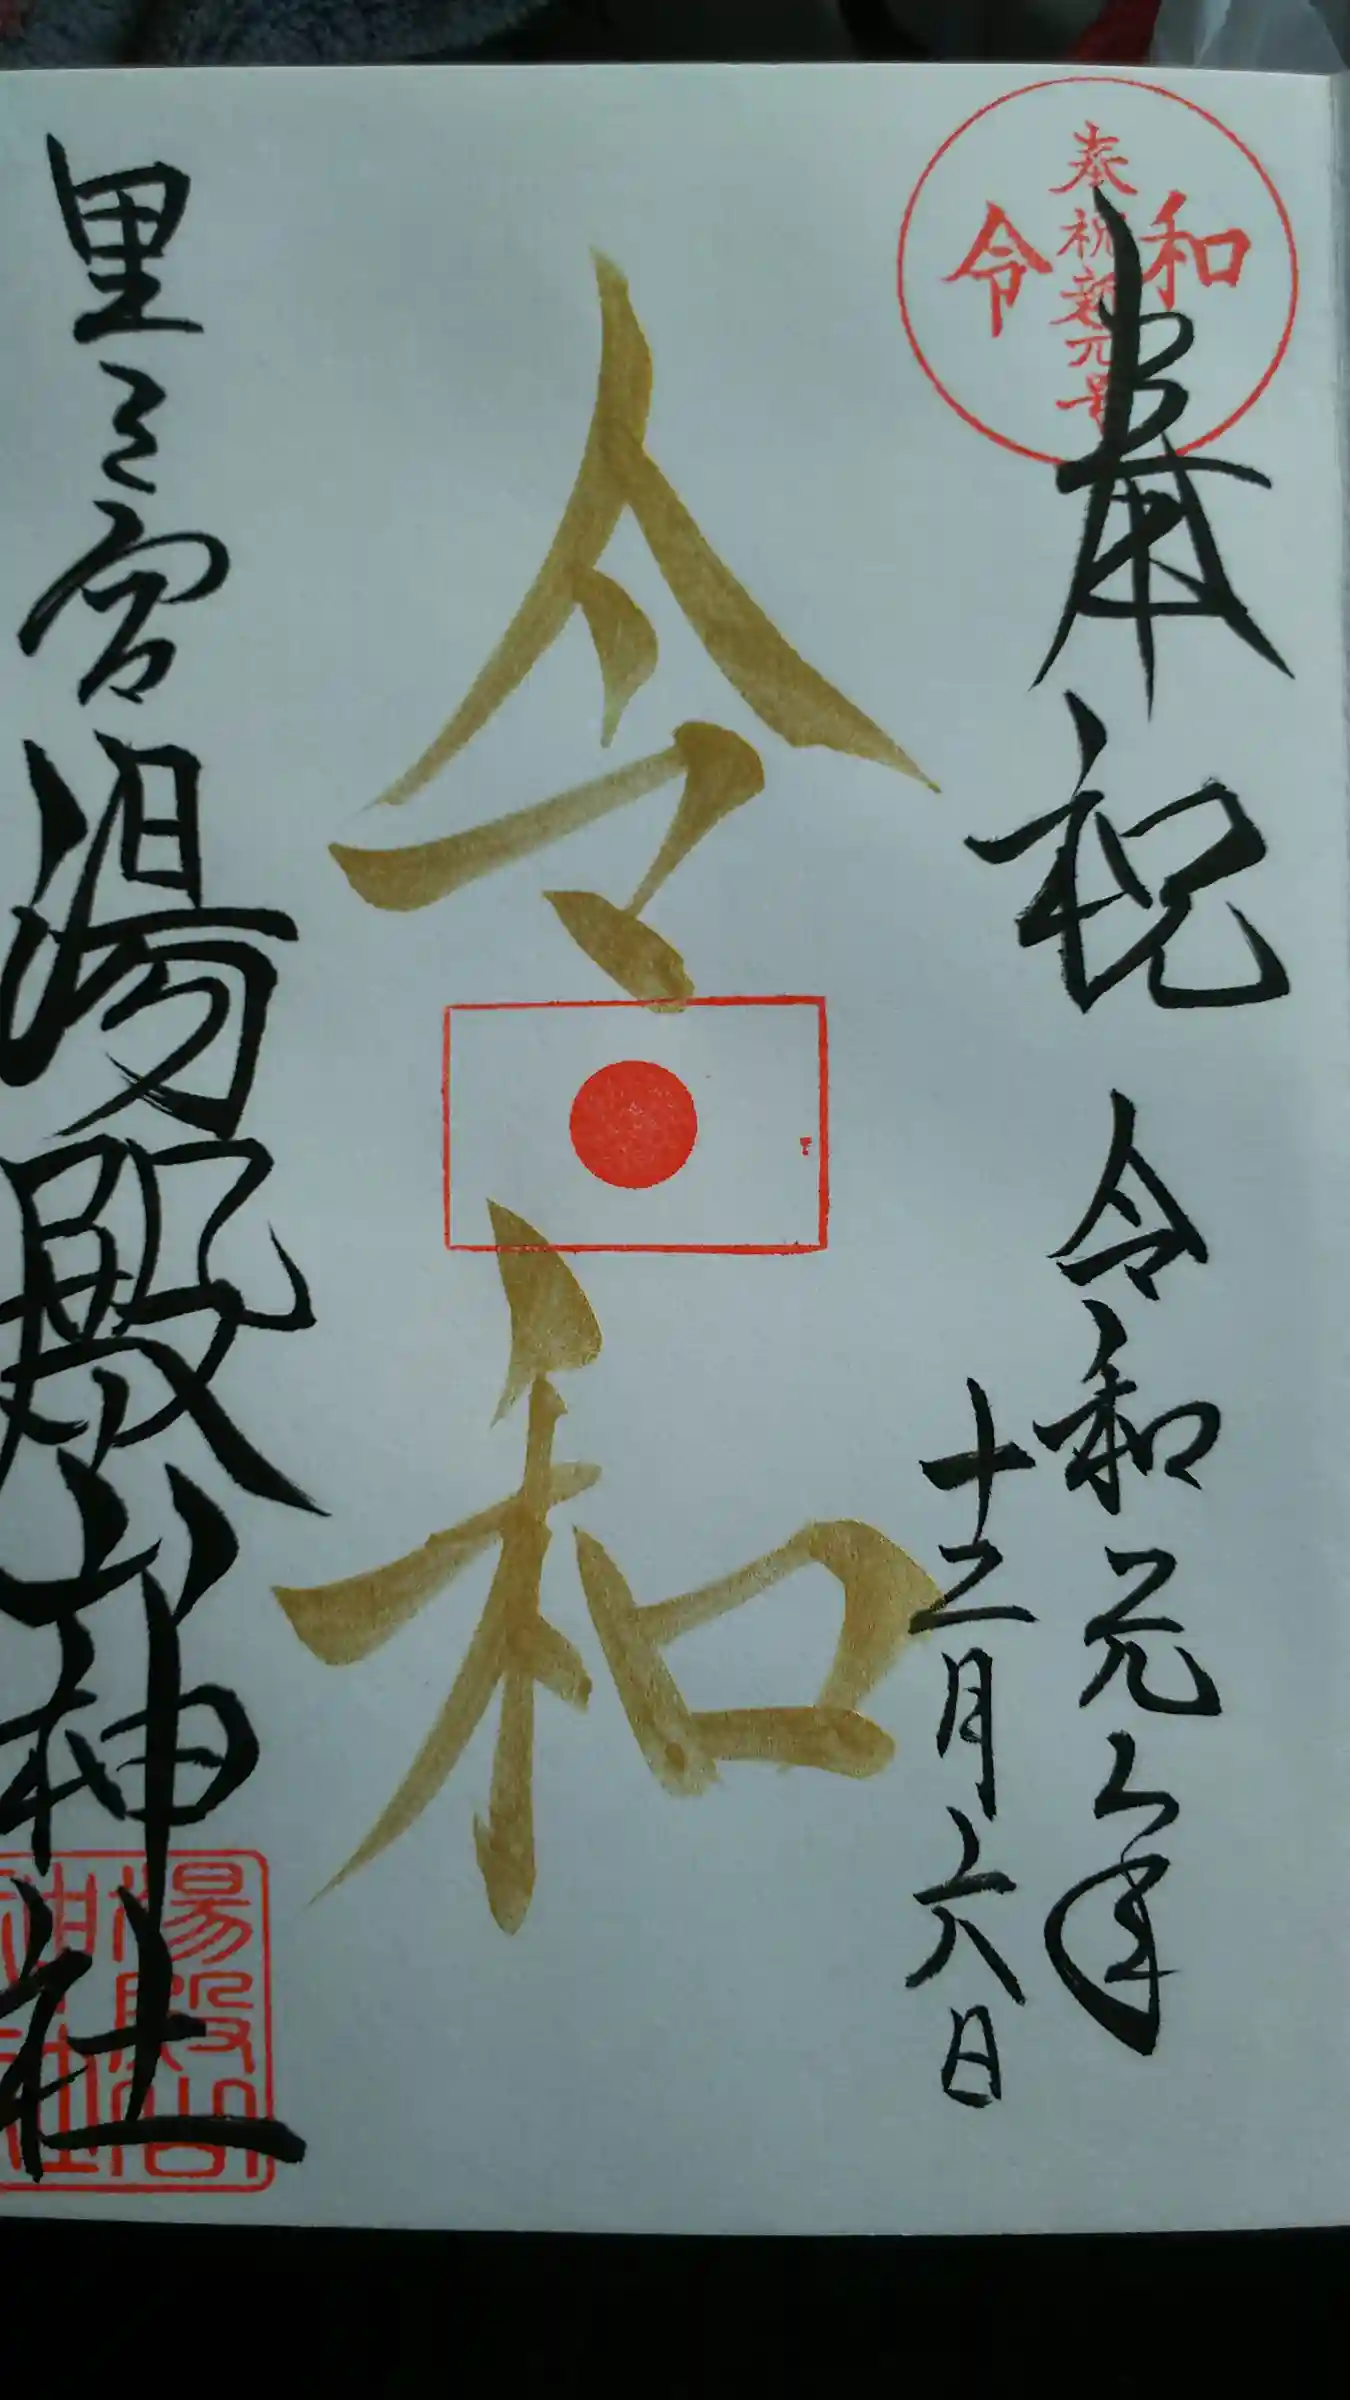 奉祝新元号
令和
奉祝
令和元年
十二月六日
令和
里之宮
湯殿山神社
湯殿山
神社